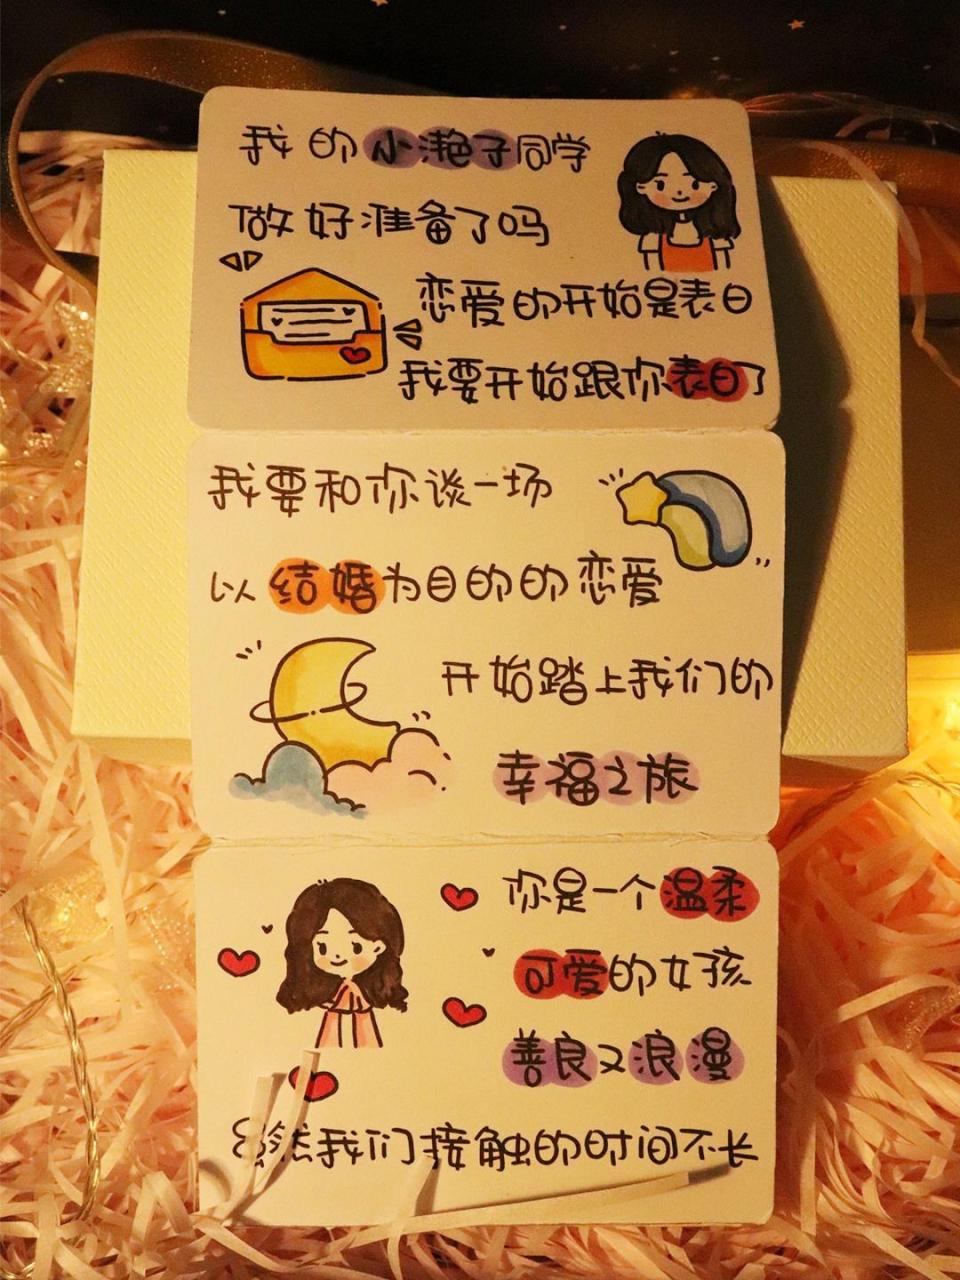 我的小滟子同学
做好准备了吗
恋爱的开始是表白
我要开始跟你表白了
我要和你谈一场
以结婚为目的的恋爱
开始踏上我们的
幸福之旅
你是一个温柔
可爱的女孩
善良又浪漫
虽然我们接触的时间不长